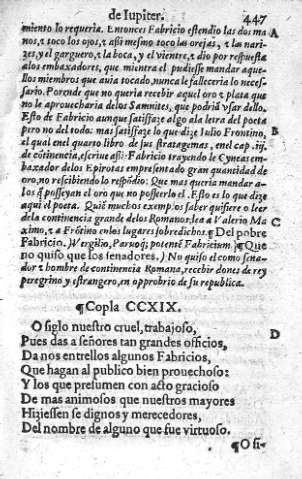 de Iupiter. 447
miento lo requeria. Entonces Fabricio estendio las dos ma
nos, z toco los ojos, z assi mesmo toco las orejas, z la nari-
zes, y el garguero, z la boca, y el vientre, z dio por respuesta
a los embaxadores, que mientra el pudiesse mandar aque-
llos miembros que auia tocado, nunca le falleceria lo neces
sario. Porende que no queria recebir aquel oro z plata que
no le aprouecharia de los Samnites, que podriā vsar dello.
Esto de Fabricio aunque satisfaze algo ala letra del poeta
pero no del todo: mas satisfaze lo que dize Iulio Frontino,
el qual enel quarto libro de sus stratagemas, enel cap .iij.
de cōtinencia, escriue assi: Fabricio trayendo le Cyneas em-
baxador de los Epirotas empresentado gran quantidad de
oro, no rescibiendo lo respōdio: Que mas queria mandar a-
los q̄ posseyan el oro que no posseerlo el. Esto es lo que dize
aqui el poeta. Quiē muchos exemp̄os saber quisiere o leer
dela continencia grande delos Romanos, lea a Valerio Ma
ximo, z a Frōtino enlos lugares sobredichos. ¶Del pobre
Fabricio.) Vergilio, Paruoq; potentē Fabricium. ¶Que
no quiso que los senadores.) No quiso el como sena-
dor z hombre de continencia Romana, recebir dones de rey
peregrino y estrangero, en opprobrio de su republica.
A
B
C
¶Copla CCXIX.
O siglo nuestro cruel, trabajoso,
D
Pues das a señores tan grandes officios,
Da nos entrellos algunos Fabricios,
Que hagan al publico bien prouechoso:
Y los que presumen con acto gracioso
De mas animosos que nuestros mayores
Hiziessen se dignos y merecedores,
Del nombre de alguno que fue virtuoso.
¶O si-